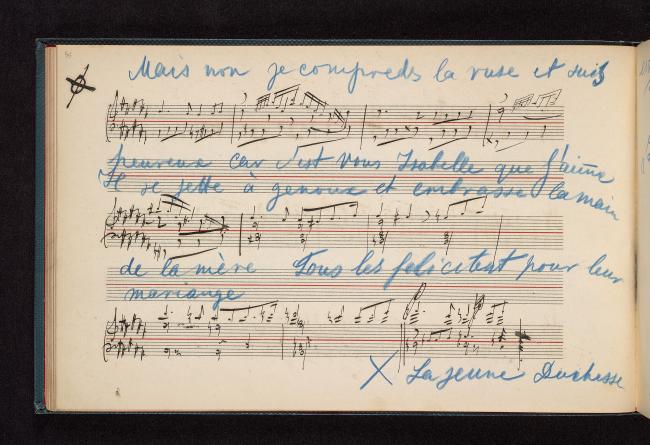 Mais non je compreds la ruse et suis
heureux car c'est vous Isabelle que j'aime
Il se jette à genoux et embrasse la main
de la mère Tous les felicitent pour leur
mariange
X La jeune Duchesse